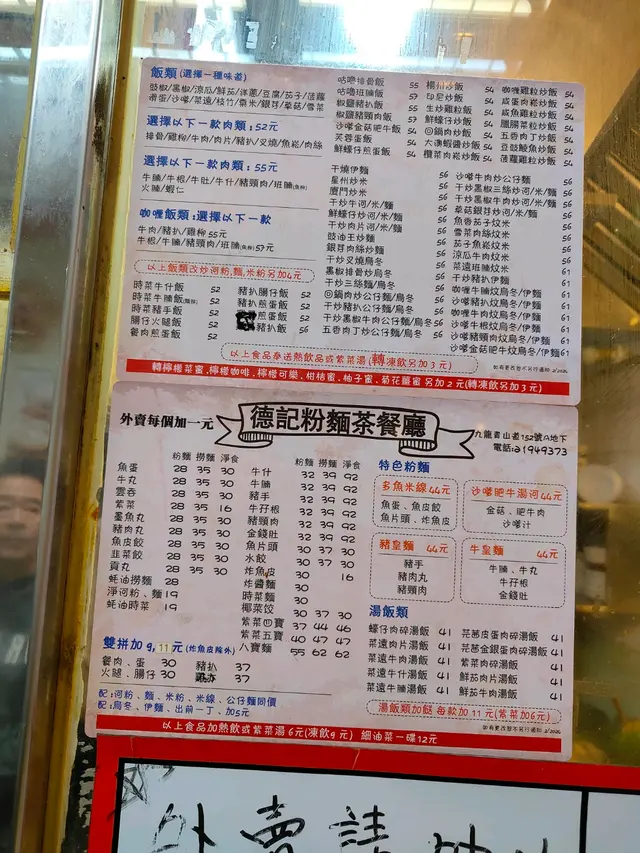 飯類(選擇一種味者)
豉椒/黑椒/涼瓜/鮮茄/洋蔥/豆腐/茄子/菠蘿
滑蛋/沙嗲/菜遠/枝竹/粟米/銀芽/蘑菇/雪菜
選擇以下一款肉類:52元
排骨/雞柳/牛肉/肉片/豬扒/叉燒/魚崧/肉絲
選擇以下一款肉類:55元
牛腩/牛根/牛肚/牛什/豬頸肉/班腩(魚柳)
火腩/蝦仁
咖喱飯類:選擇以下一款
牛肉/豬扒/雞柳 55元
牛根/牛腩/豬頸肉/班腩(魚柳)57元
以上飯類改炒河粉,麵,米粉另加4元
時菜牛什飯 52
時菜牛腩飯 52
時菜豬手飯 52
腸仔火腿飯 52
餐肉煎蛋飯 52
豬扒腸仔飯 52
豬扒煎蛋飯 52
煎蛋飯 52
豬扒飯 52
咕嚕排骨飯 55
咕嚕班腩飯 57
椒鹽豬扒飯 55
椒鹽豬頸肉飯 57
沙嗲金菇肥牛飯 54
芙蓉蛋飯 54
鮮蠔仔煎蛋飯 54
楊州炒飯 54
印尼炒飯 54
生炒雞粒飯 54
鮮蠔仔炒飯 54
回鍋肉炒飯 54
大澳蝦醬炒飯 54
欖菜肉崧炒飯 54
咖喱雞粒炒飯 54
咸蛋肉崧炒飯 54
咸魚雞粒炒飯 54
臘腸菜粒炒飯 54
五香肉丁炒飯 54
豆豉鯪魚炒飯 54
菠蘿雞粒炒飯 54
干燒伊麵 56
星州炒米 56
廈門炒米 56
干炒牛河/米/麵 56
鮮蠔仔炒河/米/麵 56
干炒肉片河/米/麵 56
豉油王炒麵 56
銀芽肉絲炒麵 56
干炒叉燒烏冬 56
黑椒排骨炒烏冬 61
干炒三絲麵/烏冬 56
回鍋肉炒公仔麵/烏冬 56
干炒豬扒公仔麵/烏冬 56
干炒黑椒牛肉公仔麵/烏冬 56
五香肉丁炒公仔麵/烏冬 56
沙嗲牛肉炒公仔麵 56
干炒黑椒三絲炒河/米/麵 56
干炒黑椒牛肉炒河/米/麵 56
蘑菇銀芽炒河/米/麵 56
魚香茄子炆米 56
雪菜肉絲炆米 56
茄子魚崧炆米 56
涼瓜牛肉炆米 56
菜遠班腩炆米 61
干炒豬扒伊麵 61
咖喱牛腩炆烏冬/伊麵 61
沙嗲豬扒炆烏冬/伊麵 61
沙嗲牛根炆烏冬/伊麵 61
沙嗲豬頸肉炆烏冬/伊麵 61
沙嗲金菇肥牛炆烏冬/伊麵 61
以上食品奉送熱飲品或紫菜湯(轉凍飲加3元)
如有更改恕不另行通知
轉檸檬菜蜜,檸檬咖啡,檸檬可樂,柑桔蜜,柚子蜜,菊花薑蜜 另加2元(轉凍飲另加3元)
外賣每個加一元
德記粉麵茶餐廳
九龍青山道152號A地下
電話:21949373
粉麵 撈麵 淨食
魚蛋 28 35 30
牛丸 28 35 30
雲吞 28 35 30
紫菜 28 35 16
墨魚丸 28 35 30
豬肉丸 28 35 30
魚皮餃 28 35 30
韭菜餃 28 35 30
貢丸 28 35 30
蚝油撈麵 28
淨河粉、麵 19
蚝油時菜 19
粉麵 撈麵 淨食
牛什 32 39 92
牛腩 32 39 92
豬手 32 39 92
牛孖根 32 39 92
豬頸肉 32 39 92
金錢肚 32 39 92
魚片頭 30 37 30
水餃 30 37 30
炸魚皮 30 16
炸醬麵 30
時菜麵 30
椰菜餃 30 37 30
紫菜四寶 37 44 46
紫菜五寶 40 47 47
八寶麵 55 62 62
雙拼加9,11元(炸魚皮除外)
餐肉、蛋 30
火腿、腸仔 30
豬扒 37
37
配:河粉、麵、米粉、米線、公仔麵同價
配:烏冬、伊麵、出前一丁、加5元
特色粉麵
多魚米線 44元
魚蛋、魚皮餃
魚片頭、炸魚皮
沙嗲肥牛湯河 44元
金菇、肥牛肉
沙嗲汁
豬皇麵 44元
豬手
豬肉丸
豬頸肉
牛皇麵 44元
牛腩、牛丸
牛孖根
金錢肚
湯飯類
蠔仔肉碎湯飯 41
菜遠肉片湯飯 41
菜遠牛肉湯飯 41
菜遠牛什湯飯 41
菜遠牛腩湯飯 41
芫茜皮蛋肉碎湯飯 41
芫茜金銀蛋肉碎湯飯 41
紫菜肉碎湯飯 41
鮮茄肉片湯飯 41
鮮茄牛肉湯飯 41
湯飯類加餸 每款加11元(紫菜加6元)
以上食品加熱飲或紫菜湯6元(凍飲9元) 細油菜一碟12元
如有更改恕不另行通知
外賣請